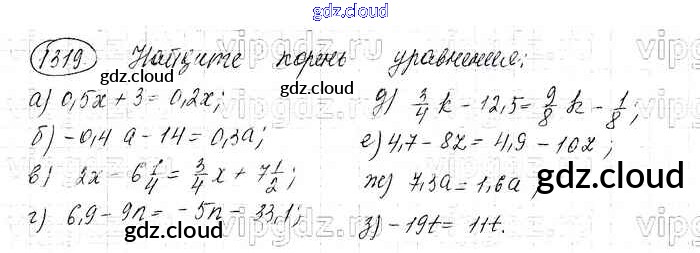 gdz.cloud
1319. Найдите корень уравнения:
gdz.cloud
gdz.cloud
а) 0,5x + 3 = 0,2x;
б) -0,4a - 14 = 0,3a;
в) 2x - 6 1/4 = 3/4 x + 7 1/2;
г) 6,9 - 9n = -5n - 33,1;
gdz.cloud
д) 3/4 k - 12,5 = 9/8 k - 1/8;
е) 4,7 - 8z = 4,9 - 10z;
gdz.cloud
ж) 7,3a = 1,6a;
gdz.cloud
з) -19t = 11t.
gdz.cloud